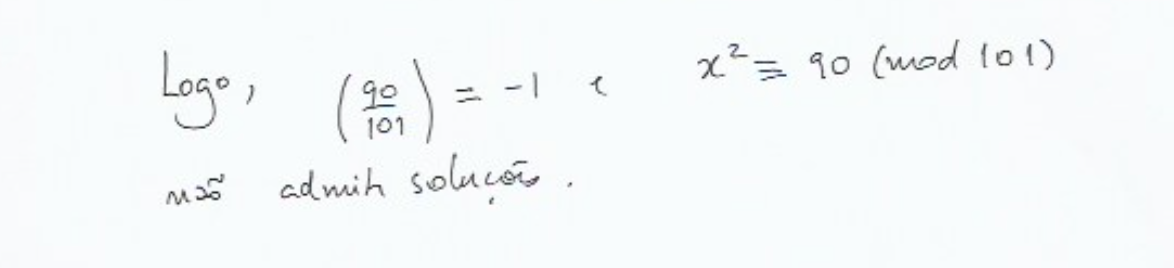 Logo, (90/101) = -1 e x² ≡ 90 (mod 101)
não admite soluções.